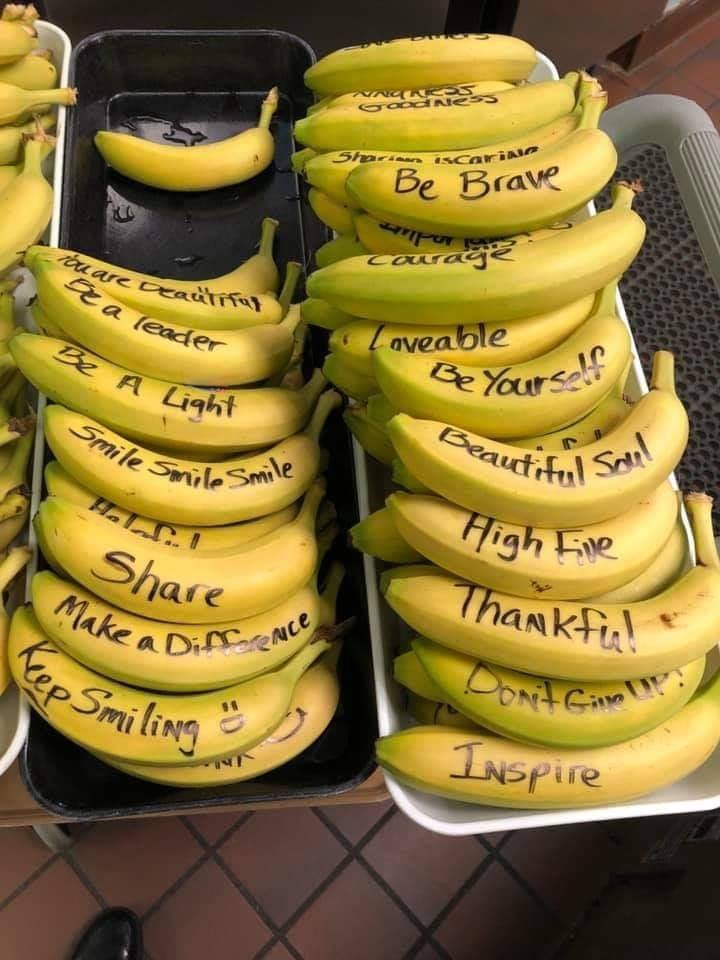 You are Beautiful
Be a leader
Be A Light
Smile Smile Smile
Helpful
Share
Make a Difference
Keep Smiling
Goodness
Sharing is Caring
Be Brave
Courage
Loveable
Be Yourself
Beautiful Soul
High Five
Thankful
Don't Give UP!
Inspire